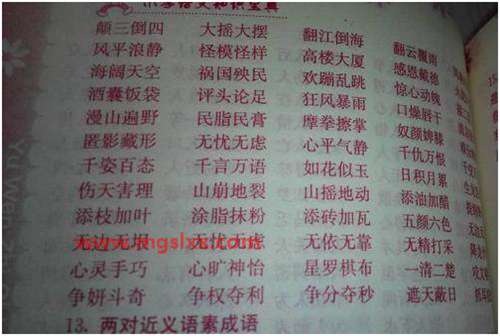 小学语文知识宝典
颠三倒四 大摇大摆 翻江倒海 翻云覆雨
风平浪静 怪模怪样 高楼大厦 感恩戴德
海阔天空 祸国殃民 欢蹦乱跳 惊心动魄
酒囊饭袋 评头论足 狂风暴雨 口燥唇干
漫山遍野 民脂民膏 摩拳擦掌 奴颜婢膝
匿影藏形 无忧无虑 心平气静 千仇万恨
千姿百态 千言万语 如花似玉 日积月累
伤天害理 山崩地裂 山摇地动 添油加醋
添枝加叶 涂脂抹粉 添砖加瓦 五颜六色
无忧无虑 无依无靠 无精打采
心灵手巧 心旷神怡 星罗棋布 一清二楚
争妍斗奇 争权夺利 争分夺秒 遮天蔽日
13. 两对近义语素成语